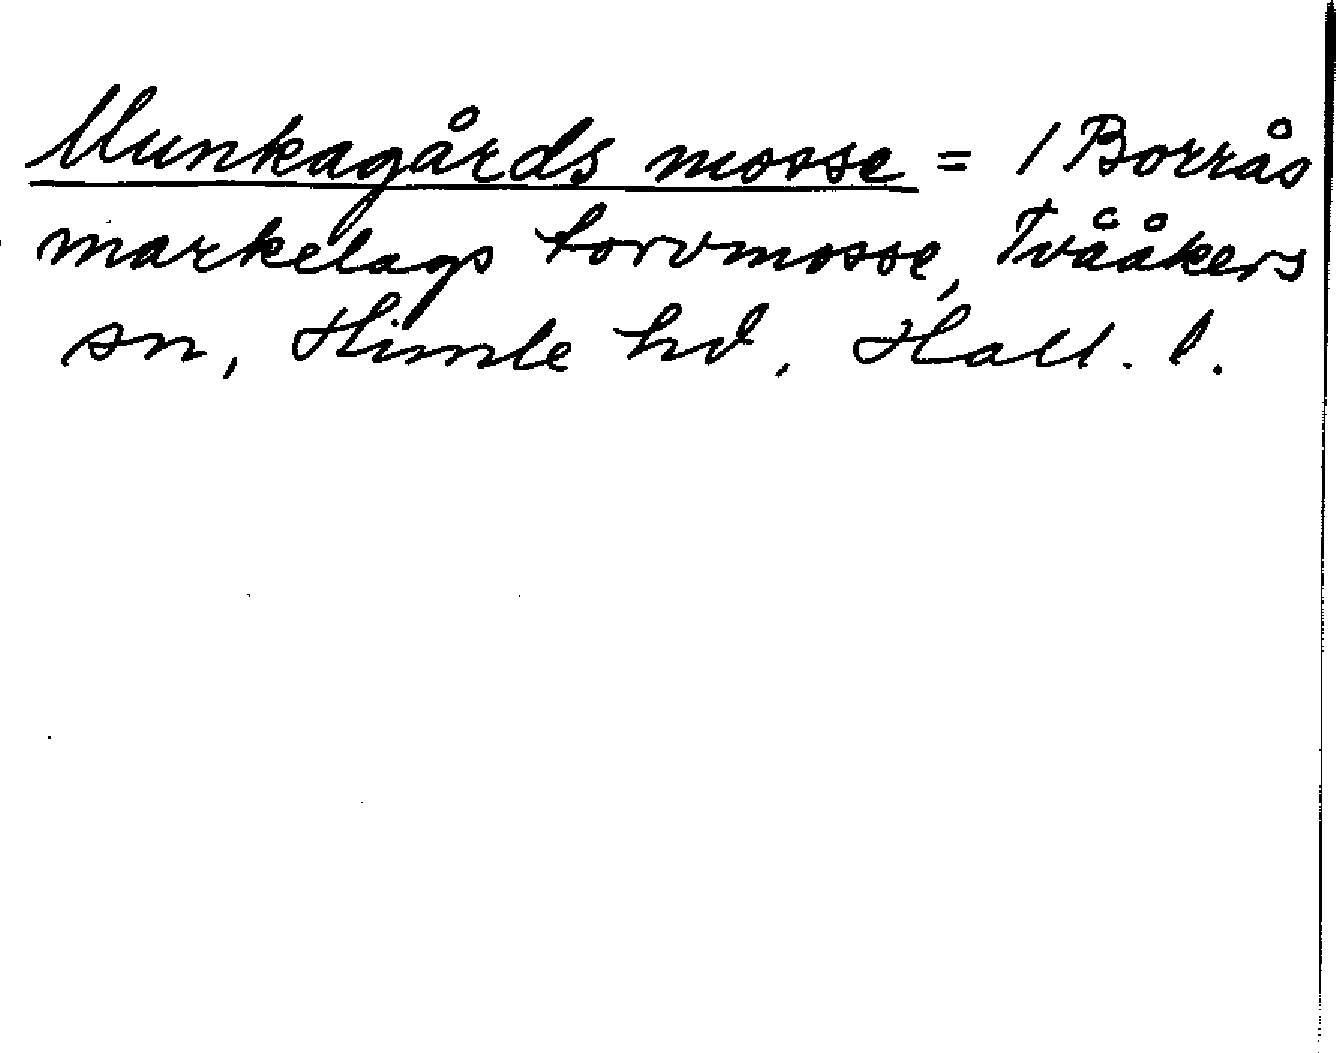 Munkagårds mosse = / Borrås
markelags torvmosse, Tvååkers
sn, Himle hd, Hall. l.